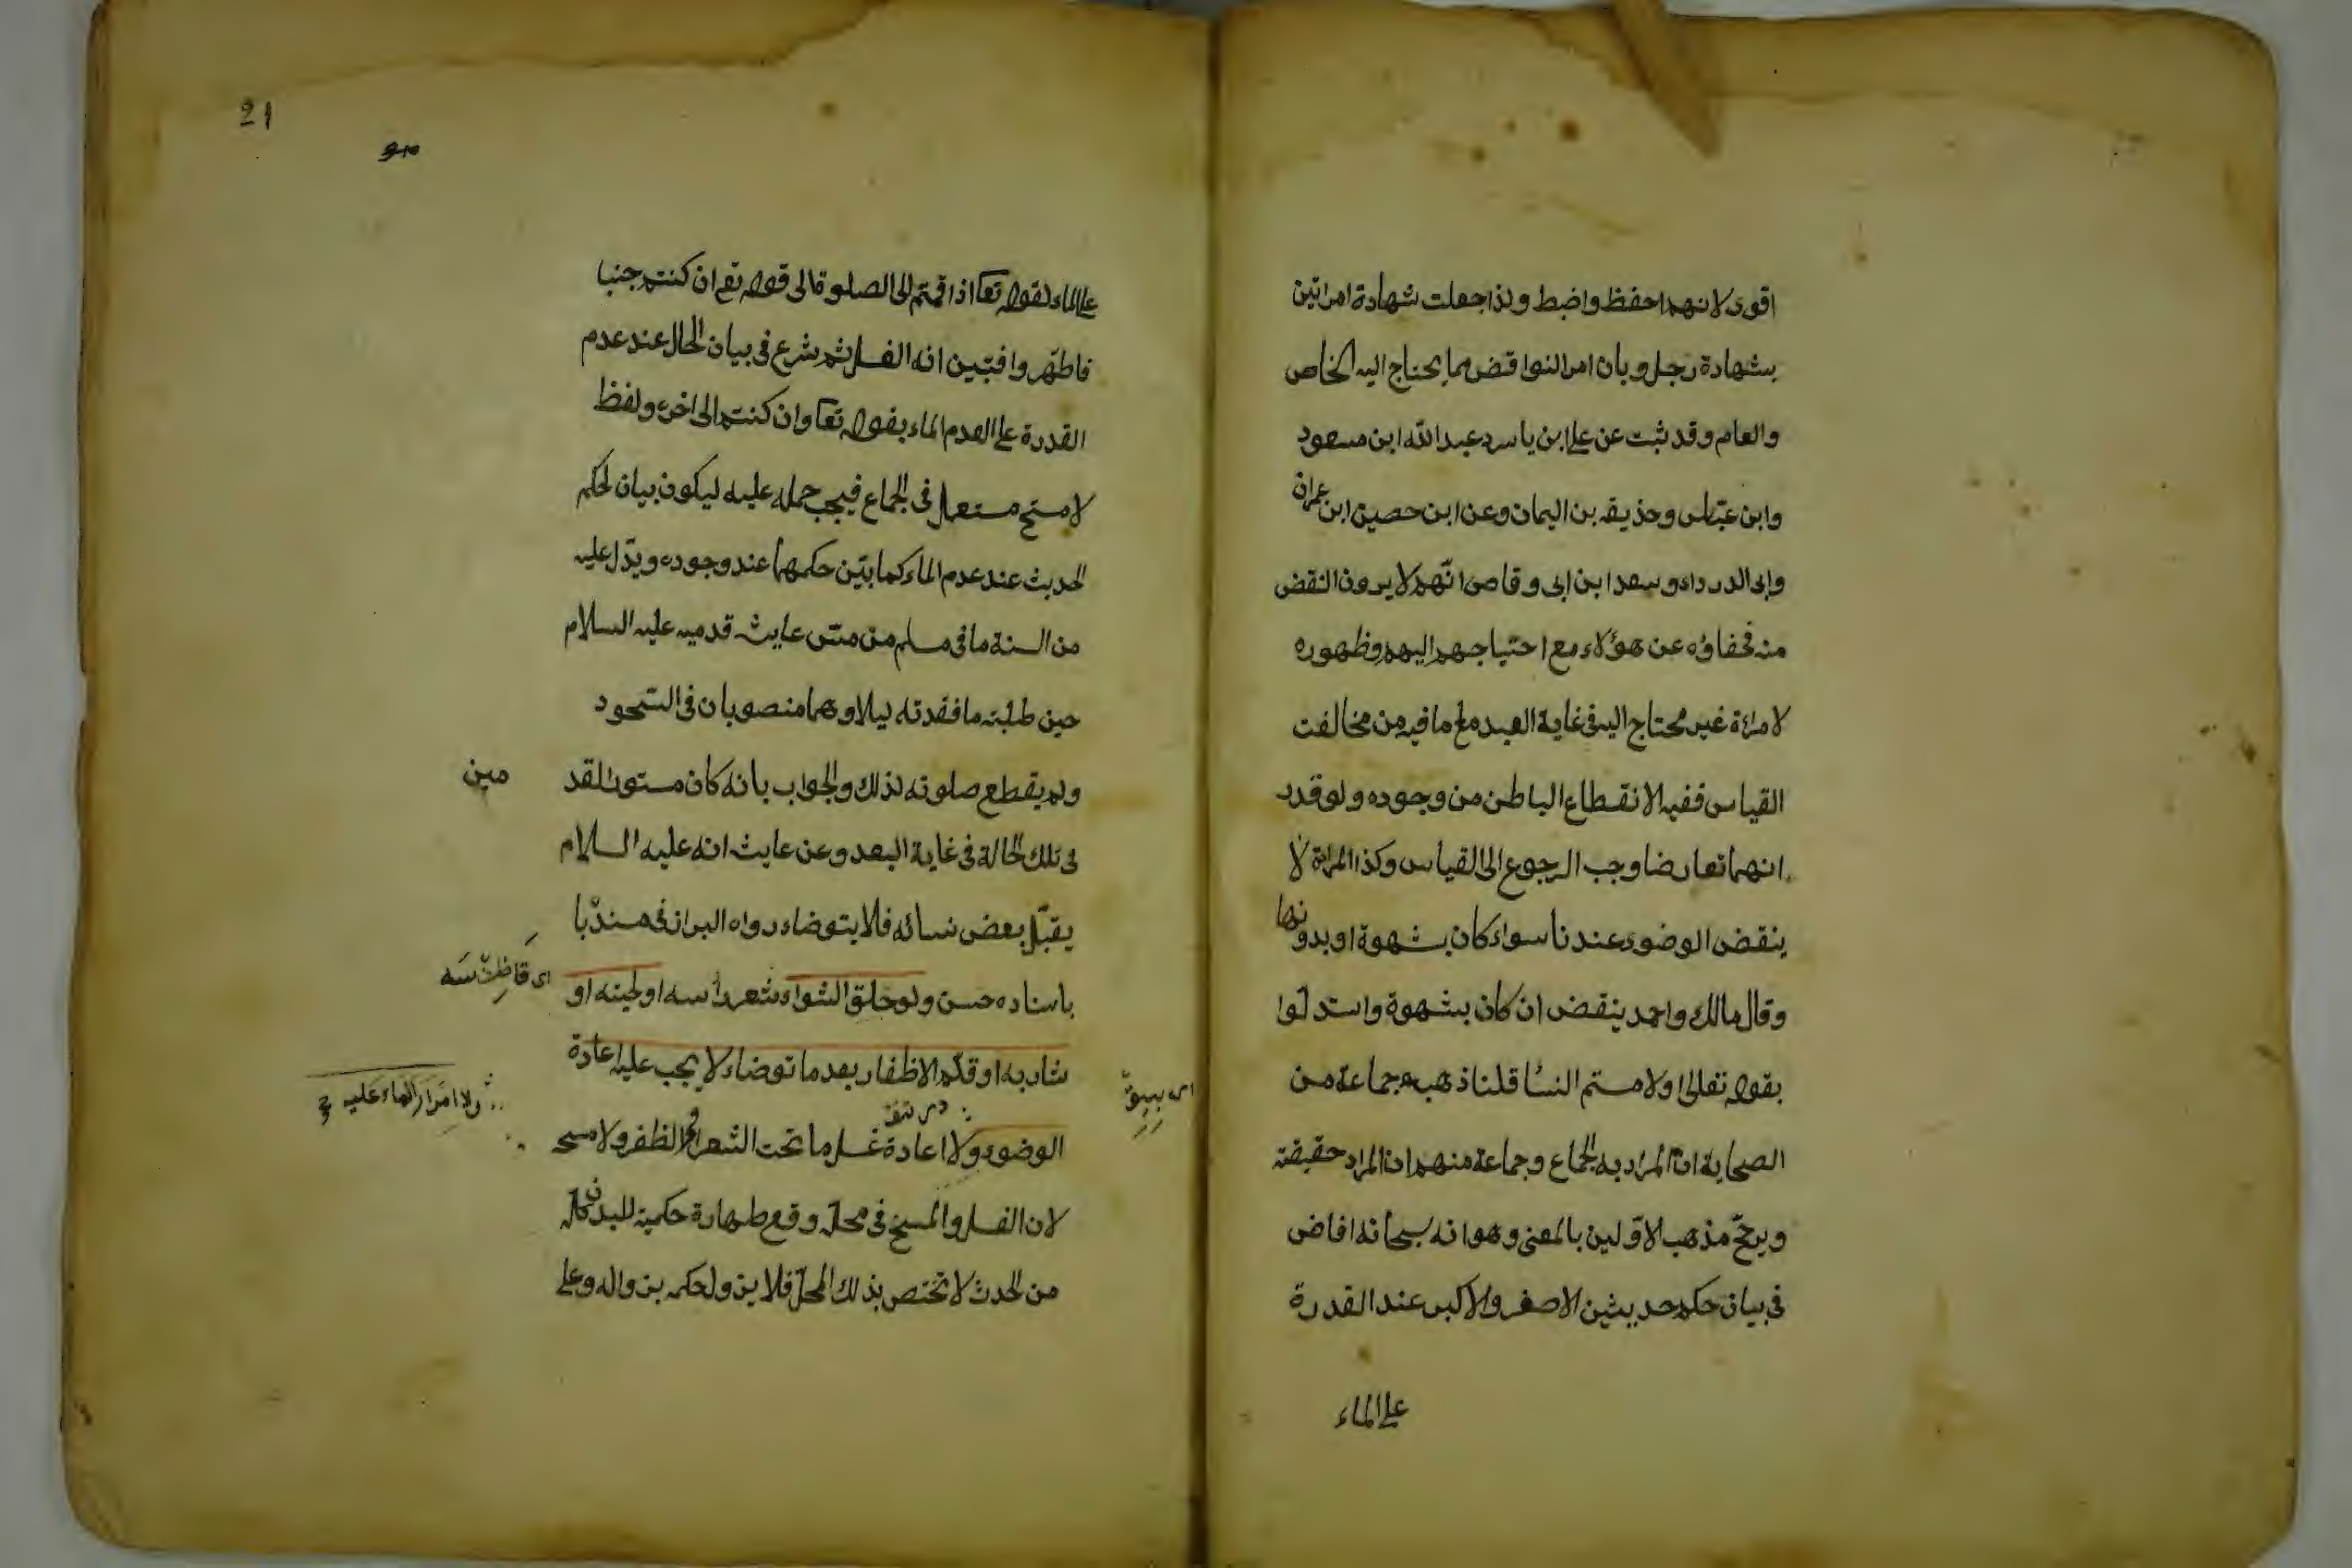 اقوى لانهما احفظ واضبط ولذا جعلت شهادة امراتين
بشهادة رجل وبان امر النواقض مما يحتاج اليه الخاص
والعام وقد ثبت عن علي ابن ياسر وعبد الله ابن مسعود
وابن عباس وحذيفه بن اليمان وعن ابن حصين ابن عمران
وابى الدرداء وسعد ابن ابى وقاص انهم لا يرون النقض
منه فخفاؤه عن هؤلاء مع احتياجهم اليهم وظهوره
لامراة غير محتاج اليه فى غاية العبد مع ما فيه من مخالفت
القياس ففيه الانقطاع الباطن من وجوده ولو قدر
انهما تعارضا وجب الرجوع الى القياس وكذا المراة لا
ينقض الوضوء عندنا سواء كان بشهوة او بدونها
وقال مالك واحمد ينقض ان كان بشهوة واستدلوا
بقوله تعالى اولامستم النسا قلنا ذهب جماعة من
الصحابة ان المراد به الجماع وجماعة منهم ان المراد حقيقته
ويرجح مذهب الاولين بالمعنى وهو انه سبحانه افاض
فى بيان حكم حديثين الاصغر والاكبر عند القدرة
على الماء
21
على الماء لقوله تعا اذا قمتم الى الصلوة الى قوله تع ان كنتم جنبا
فاطهروا فبين انه الغسل ثم شرع فى بيان الحال عند عدم
القدرة على العدم الماء بقوله تعا وان كنتم الى اخره ولفظ
لامستم مستعمل فى الجماع فيجب حمله عليه ليكون بيان لحكم
الحديث عند عدم الماء كما بين حكمهما عند وجوده ويدل عليه
من السنة ما فى مسلم من مس عايشه قدميه عليه السلام
حين طلبته ما فقدته ليلا وهما منصوبان فى السجود
ولم يقطع صلوته لذلك والجواب بانه كان مستور القد
مين
فى تلك الحالة فى غاية البعد وعن عايشه انه عليه السلام
يقبل بعض نسائه فلا يتوضاء رواه البزاز فى مسنده با
باسناده حسن ولو حلق الشواء شعر راسه او لحيته او
شاربه او قلم الاظفار بعد ما توضاء لا يجب عليه اعادة
ولا امرار الماء عليه
الوضوء ولا اعادة غسل ما تحت الشعر والظفر ولا مسح
لان الغسل والمسح فى محله وقع طهارة حكمية للبدن كله
من الحدث لا تختص بذلك المحل فلا يزول حكمه بزواله وعلى